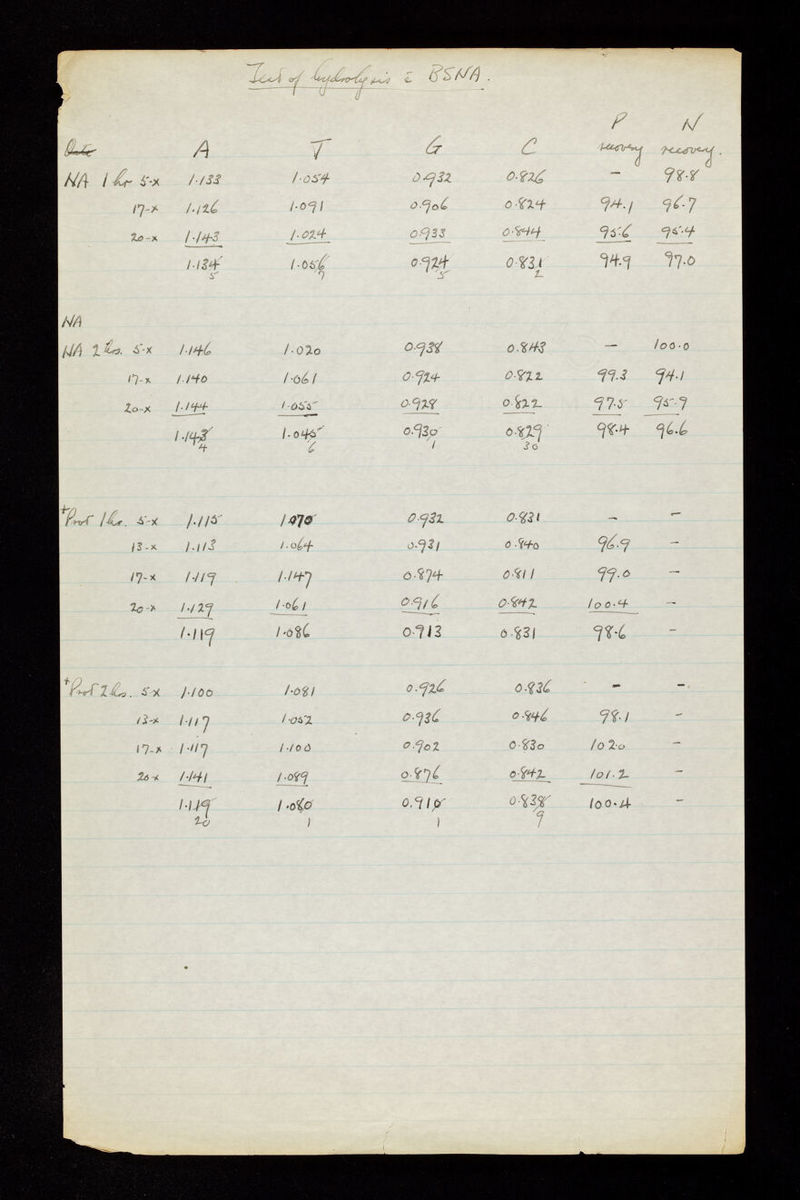 Test of hydrolysis c̄ BSNA.
P N
Date A T G C recovery recovery.
NA 1 hr 5-x 1.133 1.054 0.932 0.826 — 98.8
17-x 1.126 1.091 0.906 0.824 94.1 96.7
20-x 1.143 1.024 0.933 0.844 95.6 95.4
1.134 1.056 0.924 0.831 94.9 97.0
5 7 5 2
NA
NA 2 hrs. 5-x 1.146 1.020 0.938 0.843 — 100.0
17-x 1.140 1.061 0.924 0.822 99.3 94.1
20-x 1.144 1.055 0.928 0.822 97.5 95.9
1.143 1.045 0.930 0.829 98.4 96.6
4 6 1 30
+Prot 1 hr. 5-x 1.115 1.070 0.932 0.831 — —
13-x 1.113 1.064 0.931 0.840 96.9 —
17-x 1.119 1.147 0.874 0.811 99.0 —
20-x 1.129 1.061 0.916 0.842 100.4 —
1.119 1.086 0.913 0.831 98.6 —
+Prot 2 hrs. 5-x 1.100 1.081 0.926 0.836 — —
13-x 1.117 1.052 0.936 0.846 98.1 —
17-x 1.117 1.100 0.902 0.830 102.0 —
20-x 1.141 1.089 0.876 0.842 101.2 —
1.119 1.080 0.910 0.838 100.4 —
20 1 1 9